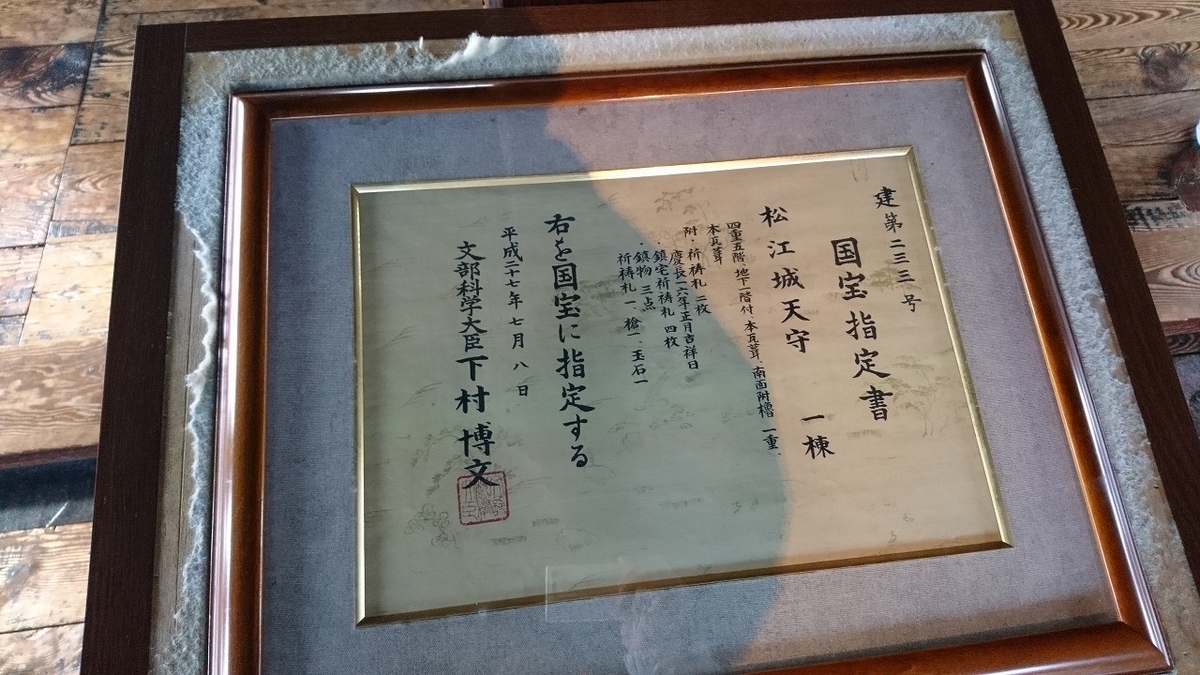 建第二三三号
国宝指定書
松江城天守 一棟
四重五階 地下一階付、本瓦葺、南面附櫓 一重、
本瓦葺
附・祈祷札 二枚
慶長一六年正月吉祥日
・鎮宅祈祷札 四枚
・鎮物 三点
祈祷札一 槍一、玉石一
右を国宝に指定する
平成二十七年七月八日
文部科学大臣 下村博文